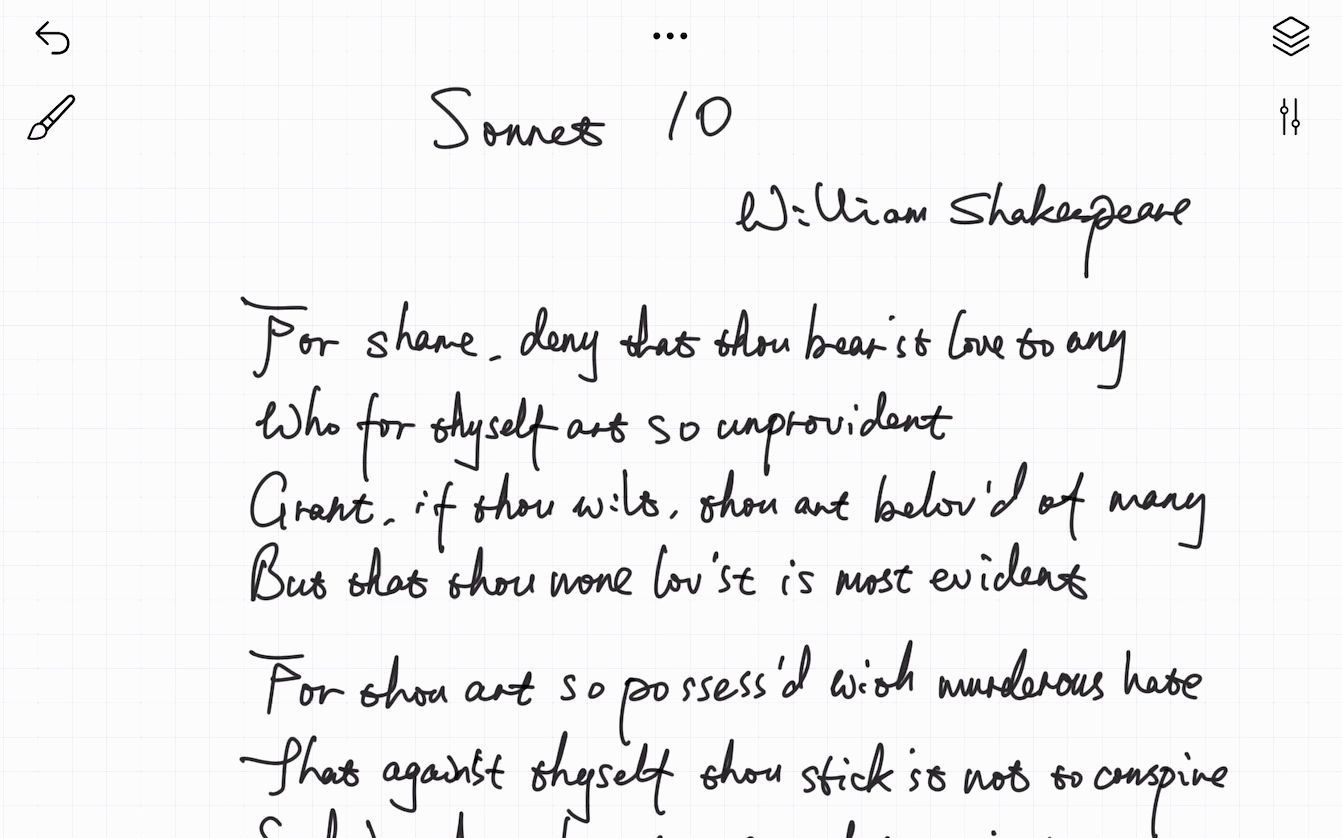 Sonnet 10
William Shakespeare
For shame, deny that thou bear'st love to any
Who for thyself art so unprovident
Grant, if thou wilt, thou art belov'd of many
But that thou none lov'st is most evident
For thou art so possess'd with murderous hate
That against thyself thou stick'st not to conspire